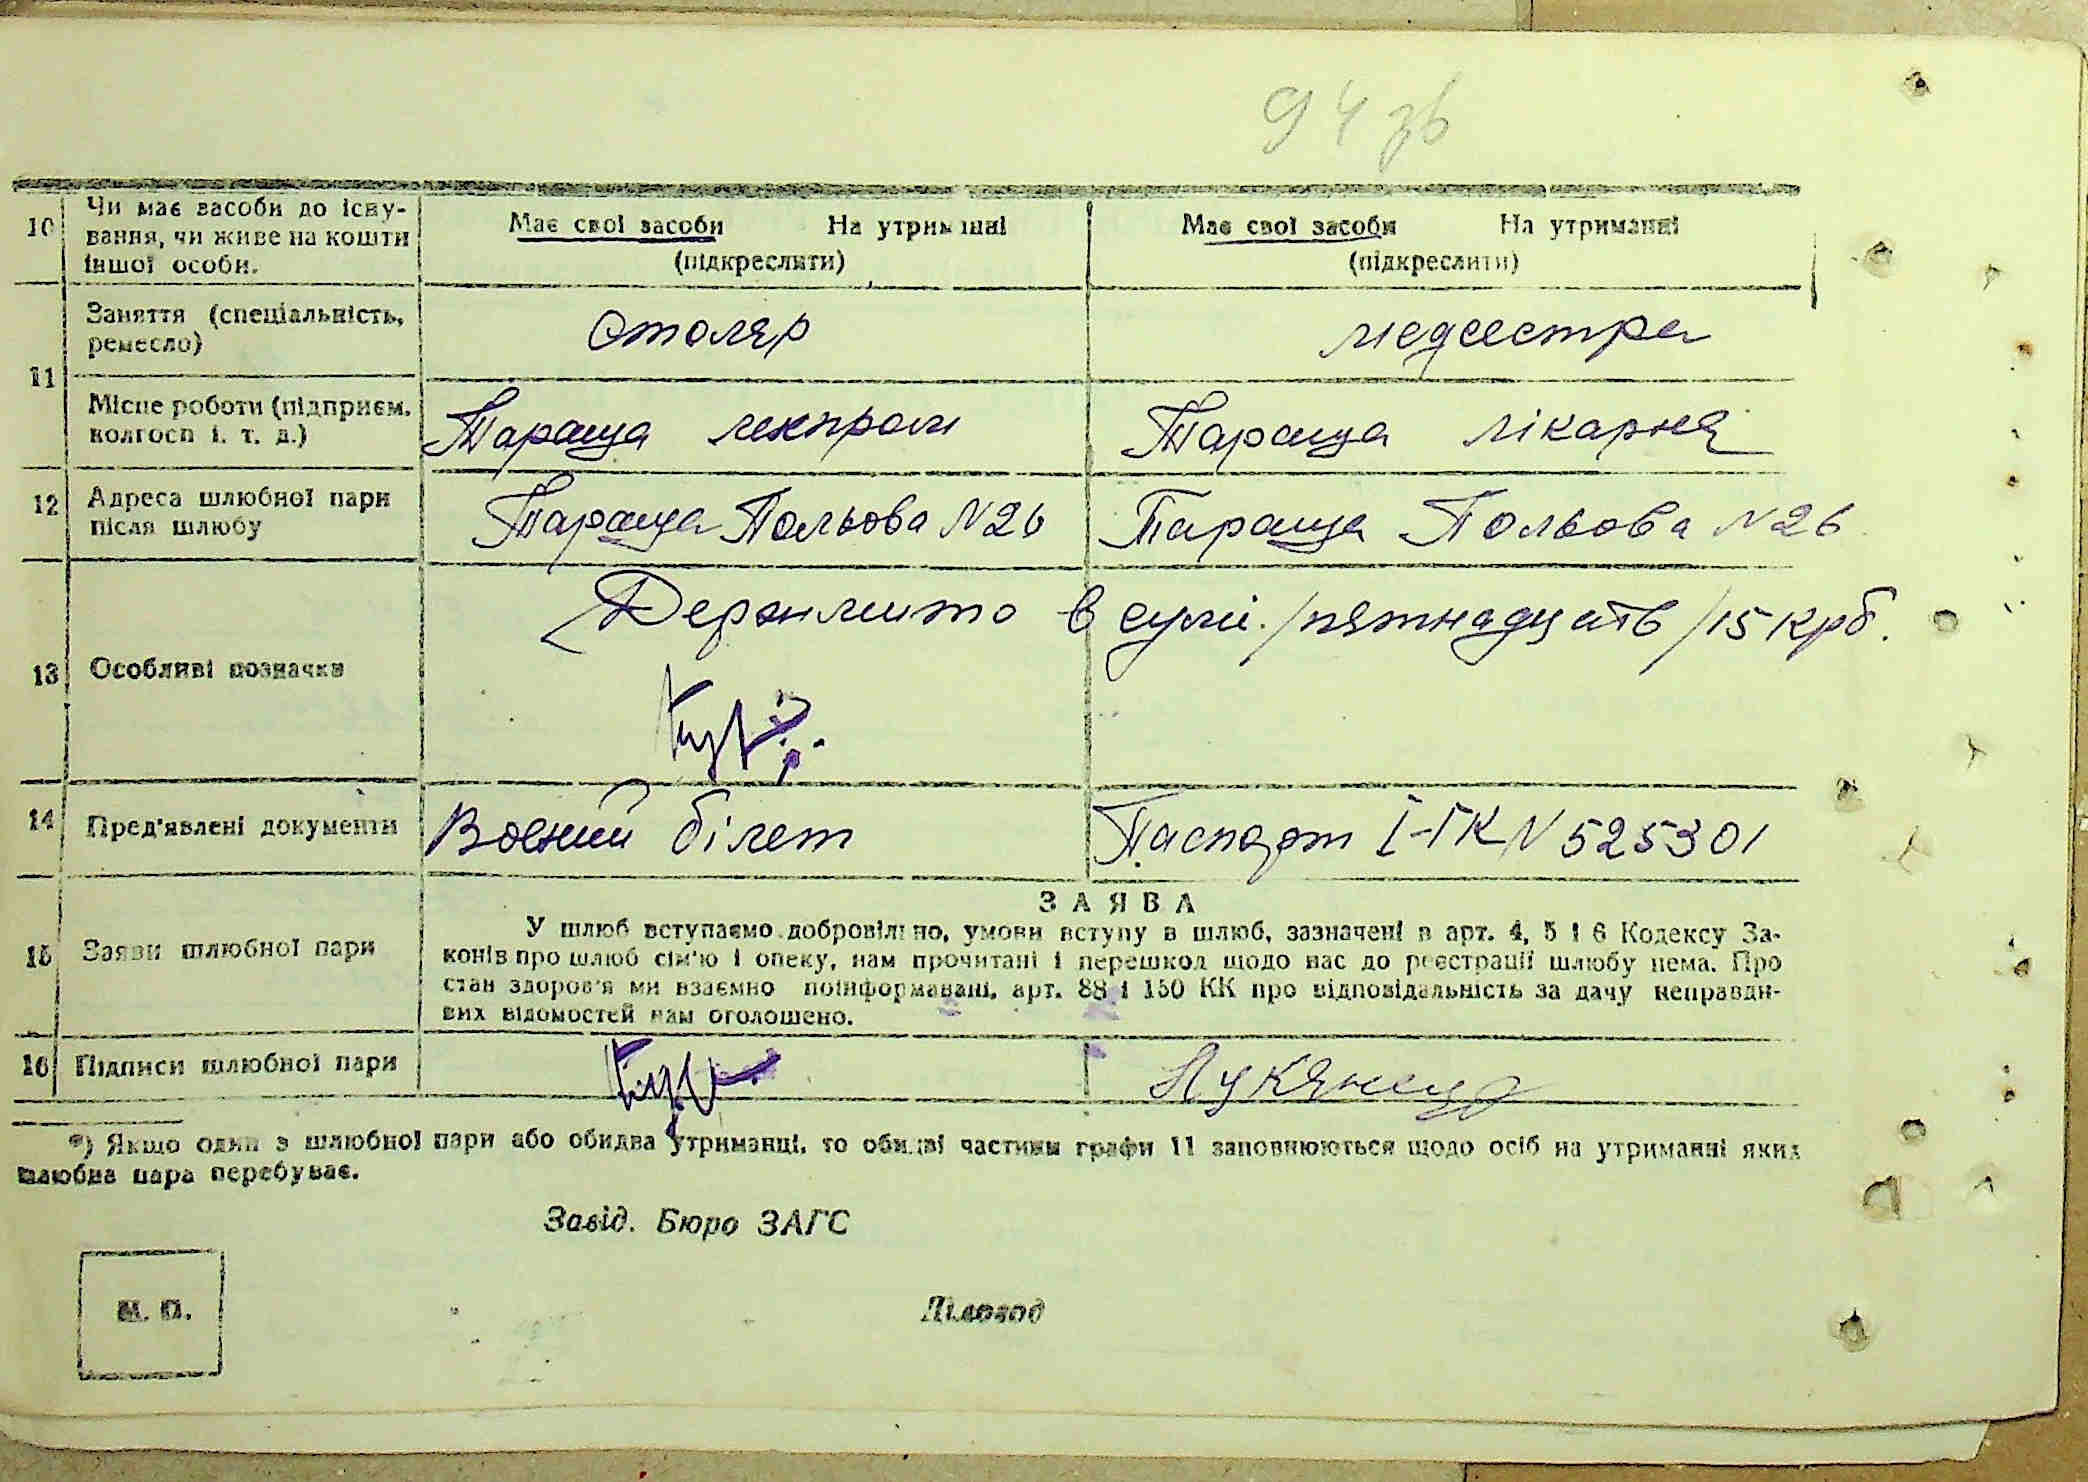 94 зв
10 Чи має засоби до існу-
вання, чи живе на кошти
іншої особи.
Має свої засоби На утриманні
(підкреслити)
Має свої засоби На утриманні
(підкреслити)
11 Заняття (спеціальність,
ремесло)
Столяр
медсестра
Місце роботи (підприєм.
колгосп і. т. д.)
Тараща
Тараща лікарня
12 Адреса шлюбної пари
після шлюбу
Тараща Польова N 26
Тараща Польова N 26
13 Особливі позначки
в сумі. /пятнадцять/ 15 крб.
14 Пред'явлені документи
Воєний білет
Паспорт I-ГК N 525301
15 Заяви шлюбної пари
ЗАЯВА
У шлюб вступаємо добровільно, умови вступу в шлюб, зазначені в арт. 4, 5 і 6 Кодексу За-
конів про шлюб сім'ю і опеку, нам прочитані і перешкод щодо нас до реєстрації шлюбу нема. Про
стан здоров'я ми взаємно поінформавані, арт. 88 і 150 КК про відповідальність за дачу неправди-
вих відомостей нам оголошено.
16 Підписи шлюбної пари
Лукянець
*) Якщо один з шлюбної пари або обидва утриманці, то обидві частини графи 11 заповнюються щодо осіб на утриманні яких
шлюбна пара перебуває.
Завід. Бюро ЗАГС
М. П.
Діловод